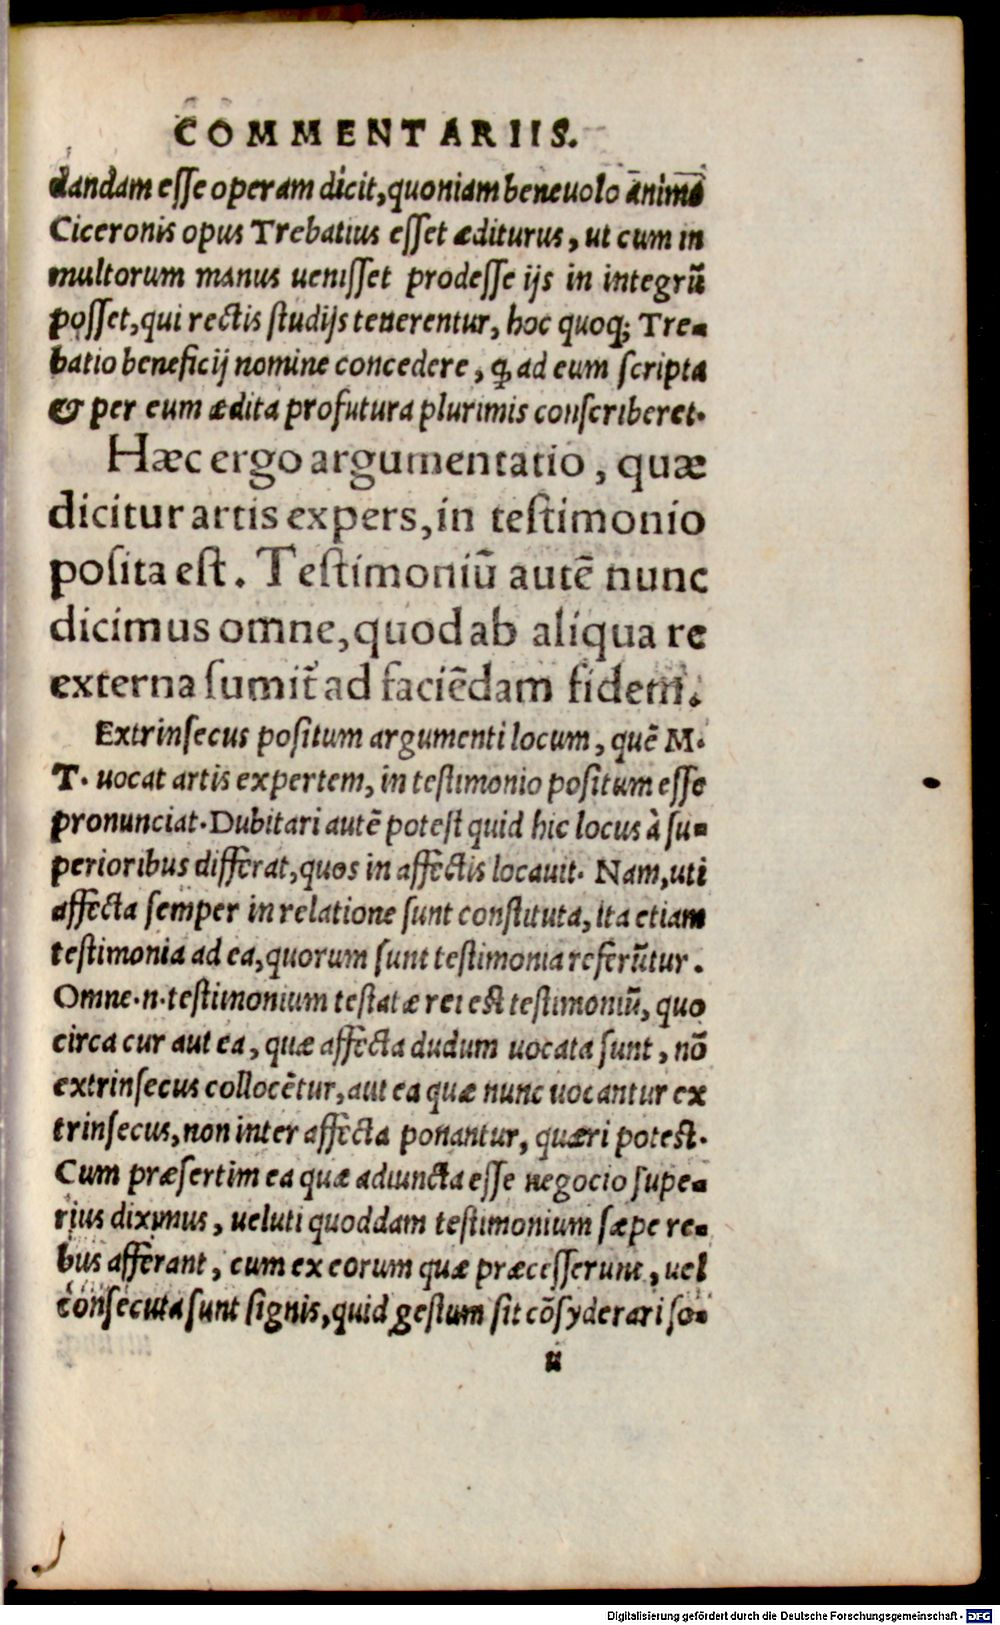 COMMENTARIIS.
dandam eſſe operam dicit, quoniam beneuolo animo
Ciceronis opus Trebatius eſſet æditurus, ut cum in
multorum manus ueniſſet prodeſſe ijs in integrũ
poſſet, qui rectis ſtudijs tenerentur, hoc quoq; Tre-
batio beneficij nomine concedere, ꝙ ad eum ſcripta
& per eum ædita profutura plurimis conſcriberet.
Hæc ergo argumentatio, quæ
dicitur artis expers, in teſtimonio
poſita eſt. Teſtimoniũ autẽ nunc
dicimus omne, quod ab aliqua re
externa ſumit̃ ad faciẽdam fidem.
Extrinſecus poſitum argumenti locum, quẽ M.
T. uocat artis expertem, in teſtimonio poſitum eſſe
pronunciat. Dubitari autẽ poteſt quid hic locus à ſu-
perioribus differat, quos in affectis locauit. Nam, uti
affecta ſemper in relatione ſunt conſtituta, ita etiam
teſtimonia ad ea, quorum ſunt teſtimonia referũtur.
Omne.n.teſtimonium teſtatæ rei eſt teſtimoniũ, quo
circa cur aut ea, quæ affecta dudum uocata ſunt, nõ
extrinſecus collocẽtur, aut ea quæ nunc uocantur ex
trinſecus, non inter affecta ponantur, quæri poteſt.
Cum præſertim ea quæ adiuncta eſſe negocio ſupe-
rius diximus, ueluti quoddam teſtimonium ſæpe re-
bus afferant, cum ex eorum quæ præceſſerunt, uel
conſecuta ſunt ſignis, quid geſtum ſit cõſyderari ſo-
u
Digitalisierung gefördert durch die Deutsche Forschungsgemeinschaft - DFG